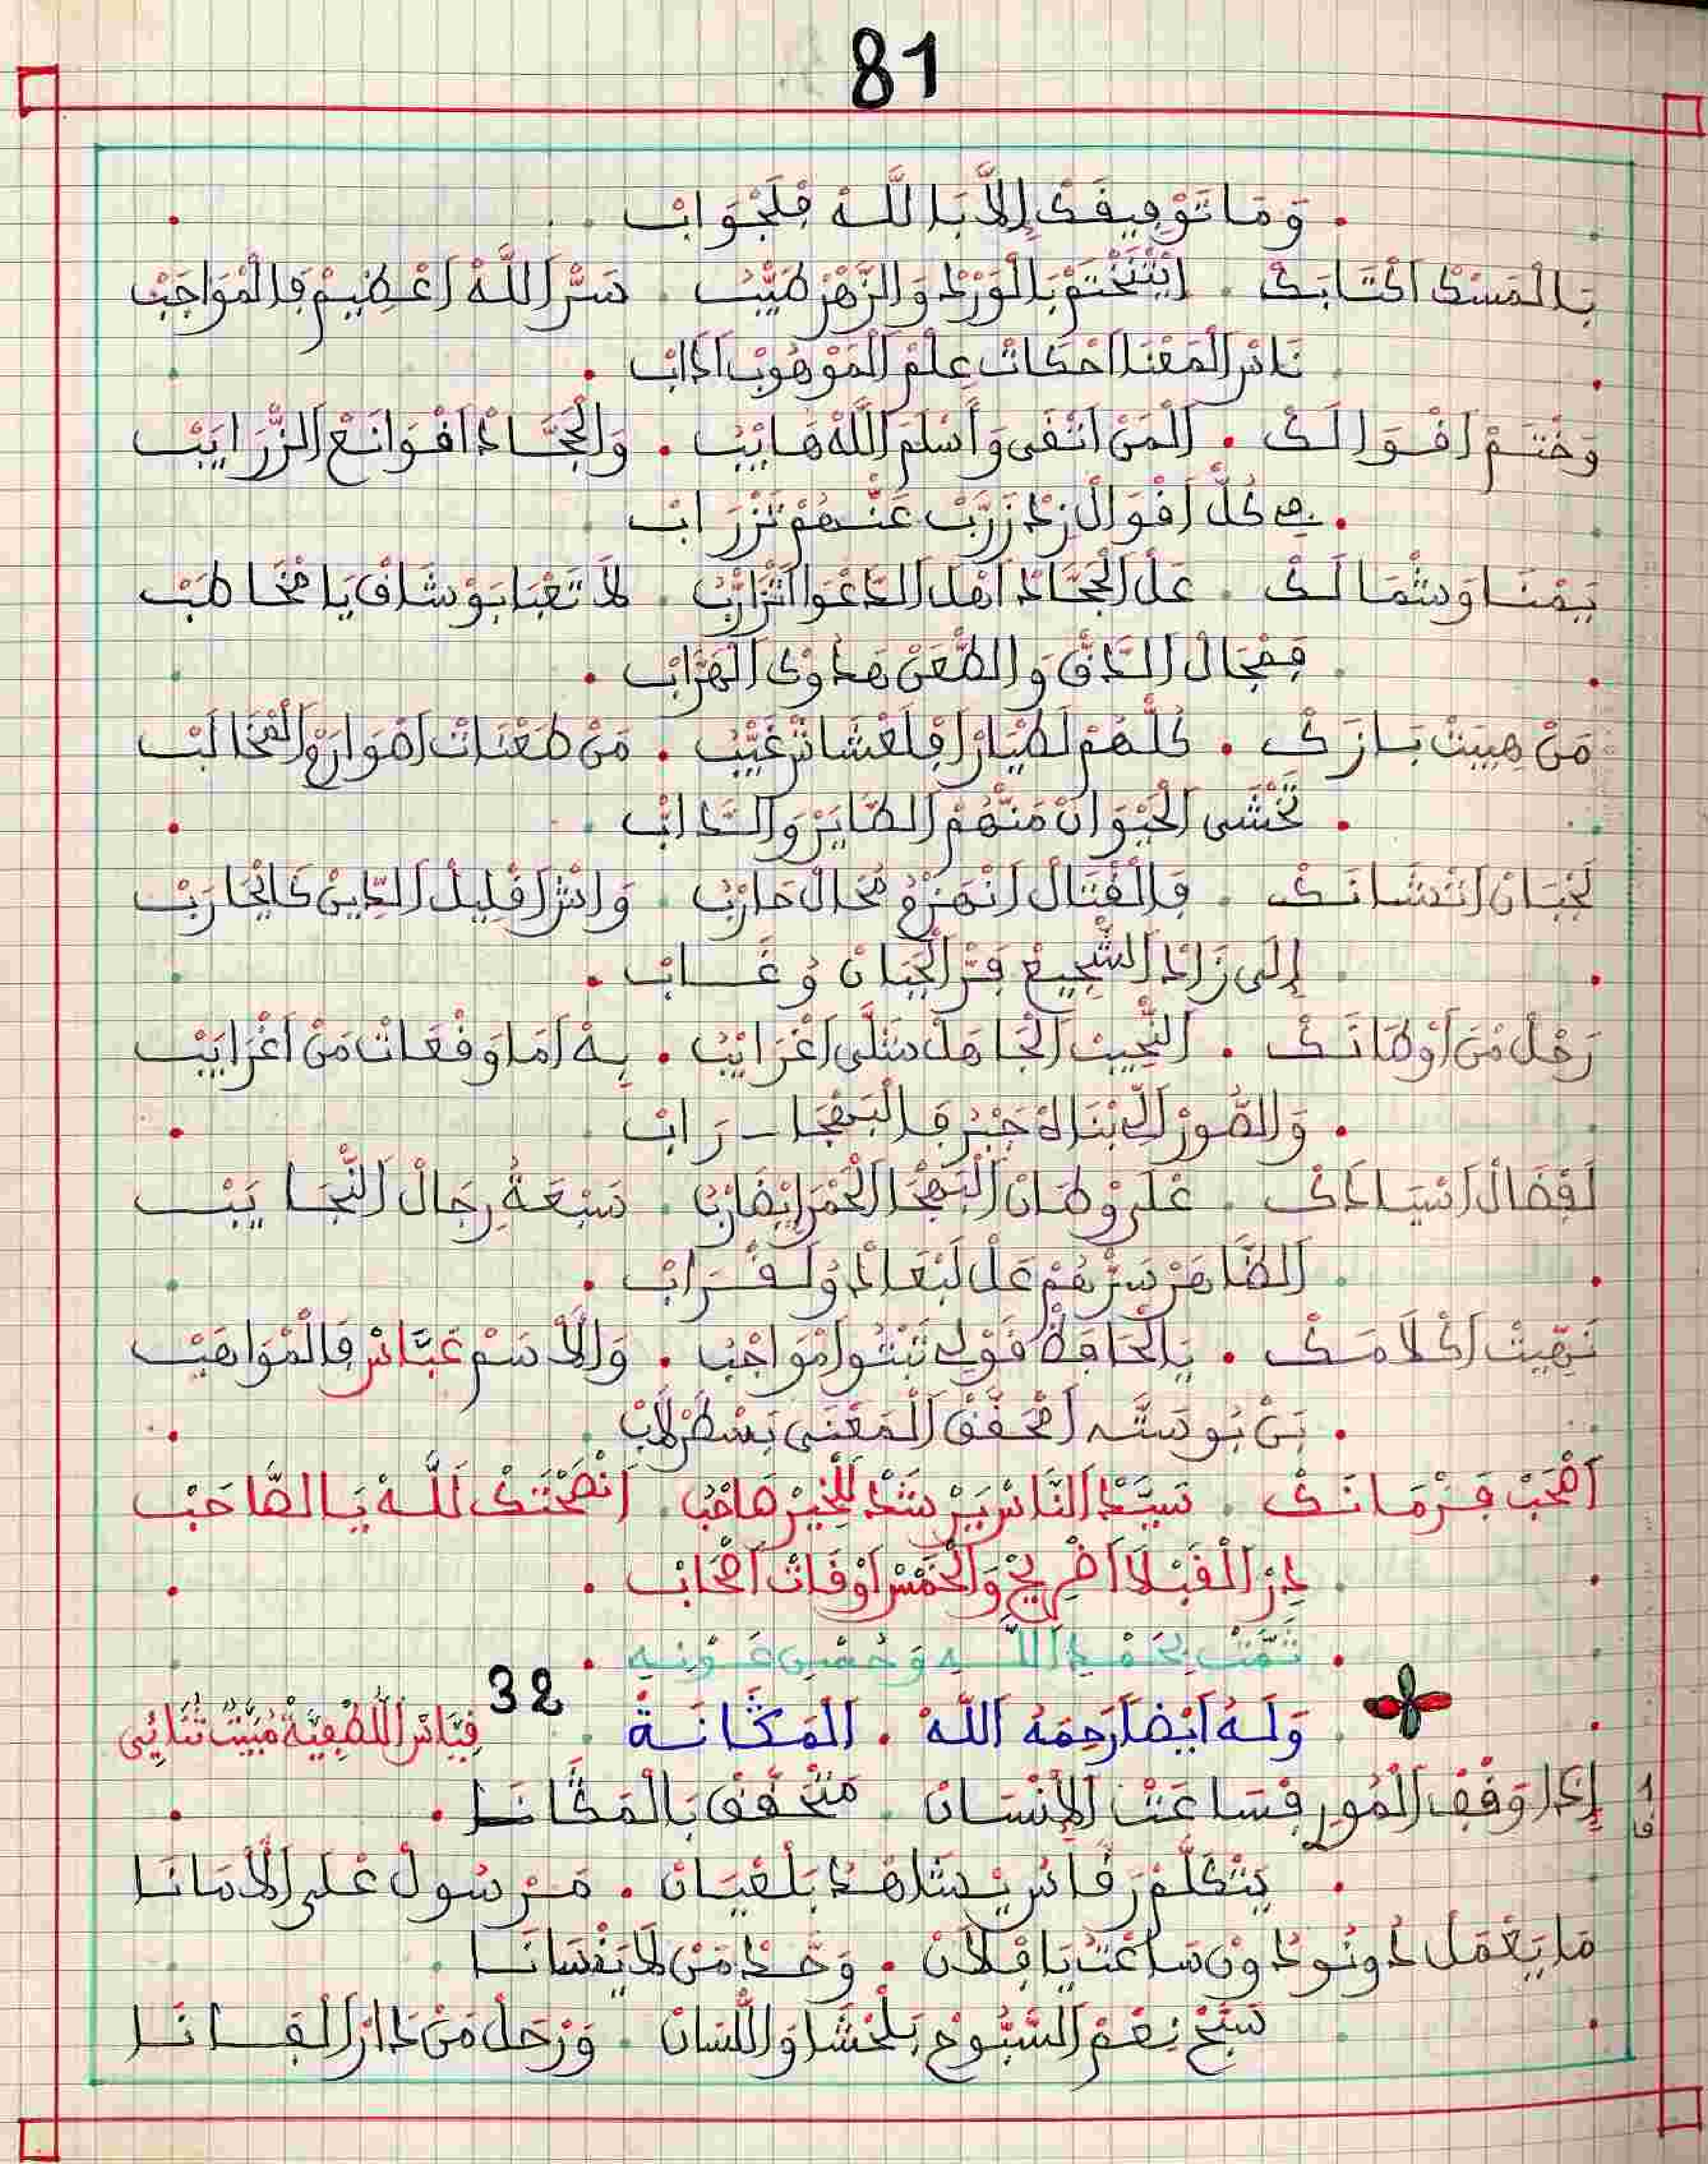 81
وَمَا تَوْفِيقَكْ إِلَّا بَاللَّهْ فَلَجْوَابْ
بَالْمَسْكْ اكْتَابَكْ . ايْتَّخْتَمْ بَالْوَرْدْ وَالزَّهْرْ طَيَّبْ . سَرّْ اللَّهْ اعْظِيمْ فَالْمْوَاجَبْ
نَادْرْ الْمَعْنَا احْكَاتْ عِلْمْ الْمَوْهُوبْ ادَّابْ
وَخْتَمْ اقْوَالَكْ . الْمَنْ اتْقَى وَأَسْلَمْ اللَّهْ هَايْبْ . وَالْجَحَّادْ اقْوَانَعْ الزّْرَايَبْ
فِي كُلّْ اقْوَالْ زِدْ زَرَّبْ عَنّْهُمْ تَزْرَابْ
يَمْنَا وَشْمَالَكْ . عَلْ الْجَحَّادْ اهْلْ الدَّعْوَا اتْزَارْبْ . لَا تَعْبَا بَوْشَافْ يَا مْخَاطَبْ
فَمْجَالْ الدَّقّْ وَالطَّعْنْ هَدُوكْ الْهَرَّابْ
مَنْ هِيبَتْ بَازَكْ . كُلّْهُمْ لَطْيَارْ افْلَعْشَاشْ غَيَّبْ . مَنْ طَعْنَاتْ اهْوَارَوْ الْمْخَالَبْ
تَخْشَى الْحَيْوَانْ مَنّْهُمْ الطَّايَرْ وَالدَّابْ
لَجْبَانْ انْتْشَانَكْ . فَالْقْتَالْ انْهَزْمْ مُحَالْ حَارْبْ . وَاشْ اقْلِيلْ الدِّينْ كَايْحَارَبْ
إِلَى زَادْ الشّْجِيعْ فَرّْ الْجْبَانْ وُغَابْ
رَحْلْ مْنْ اوْطَانَكْ . النّْجِيبْ الْجَاهَلْ سَلَّى اغْرَايْبْ . بِهْ امَا وَقْعَاتْ مَنْ اغْرَايَبْ
وَالصُّورْ الِّي بْنَاهْ جَبْرْ فَالْبَهْجَا رَابْ
لَفْضَالْ اسْيَادَكْ . عْلَى وْطَانْ الْبَهْجَا الْحَمْرَا يْضَارْبْ . سَبْعَةُ رِجَالْ النّْجَايَبْ
الظَّاهَرْ سَرّْهُمْ عَلْ لَبْعَادْ وُلَقْرَابْ
نَهِّيتْ اكْلَامَكْ . يَالْحَافَظْ قَوْلِي تَبْتُو امْوَاجْبْ . وَالْأَسَمْ عَبَّاسْ فَالْمْوَاهَبْ
بَنْ بُوسَتَّه امْحَقَّقْ الْمَعْنَى بَسْطَرْلَابْ
اصْحَبْ فَزْمَانَكْ . سَيَّدْ النَّاسْ يَرْشْدْ لَلْخِيرْ صَاحْبْ . انْصَحْتَكْ لَلَّهْ يَا الصَّاحَبْ
دِرْ الْقَبْلَا اضْرِيحْ وَالْخَمْسْ اوْقَاتْ اصْحَابْ
تَمَّتْ بِحَمْدِ اللَّهِ وَحُسْنِ عَوْنِهِ
32 وَلَهُ أَيْضاً رَحِمَهُ اللَّهْ . الْمَݣَّانَةْ . قِيَّاسْ اللَّطْفِيَّةْ مْبَيَّتْ ثْنَائِي
1 إِدَا وَقْفْ الْمُورِ فْسَاعَتْ الْإِنْسَانْ . مَتْحَقَّقْ بَالْمَݣَّانَا
فا
يَتْكَلَّمْ رَقَّاسْ يْشَاهْدْ بَلْعْيَانْ . مَرْسُولْ عْلَى الْأَمَانَا
مَا يَعْمَلْ دُونُو دُونْ سَاعْتْ يَا فْلَانْ . وَحَّدْ مَنْ لَا يَنْسَانَا
سَبَّحْ نِعْمْ السَّبُّوحْ بَلْحْشَا وَاللّْسَانْ . وَرْحَلْ مَنْ دَارْ الْفَانَا